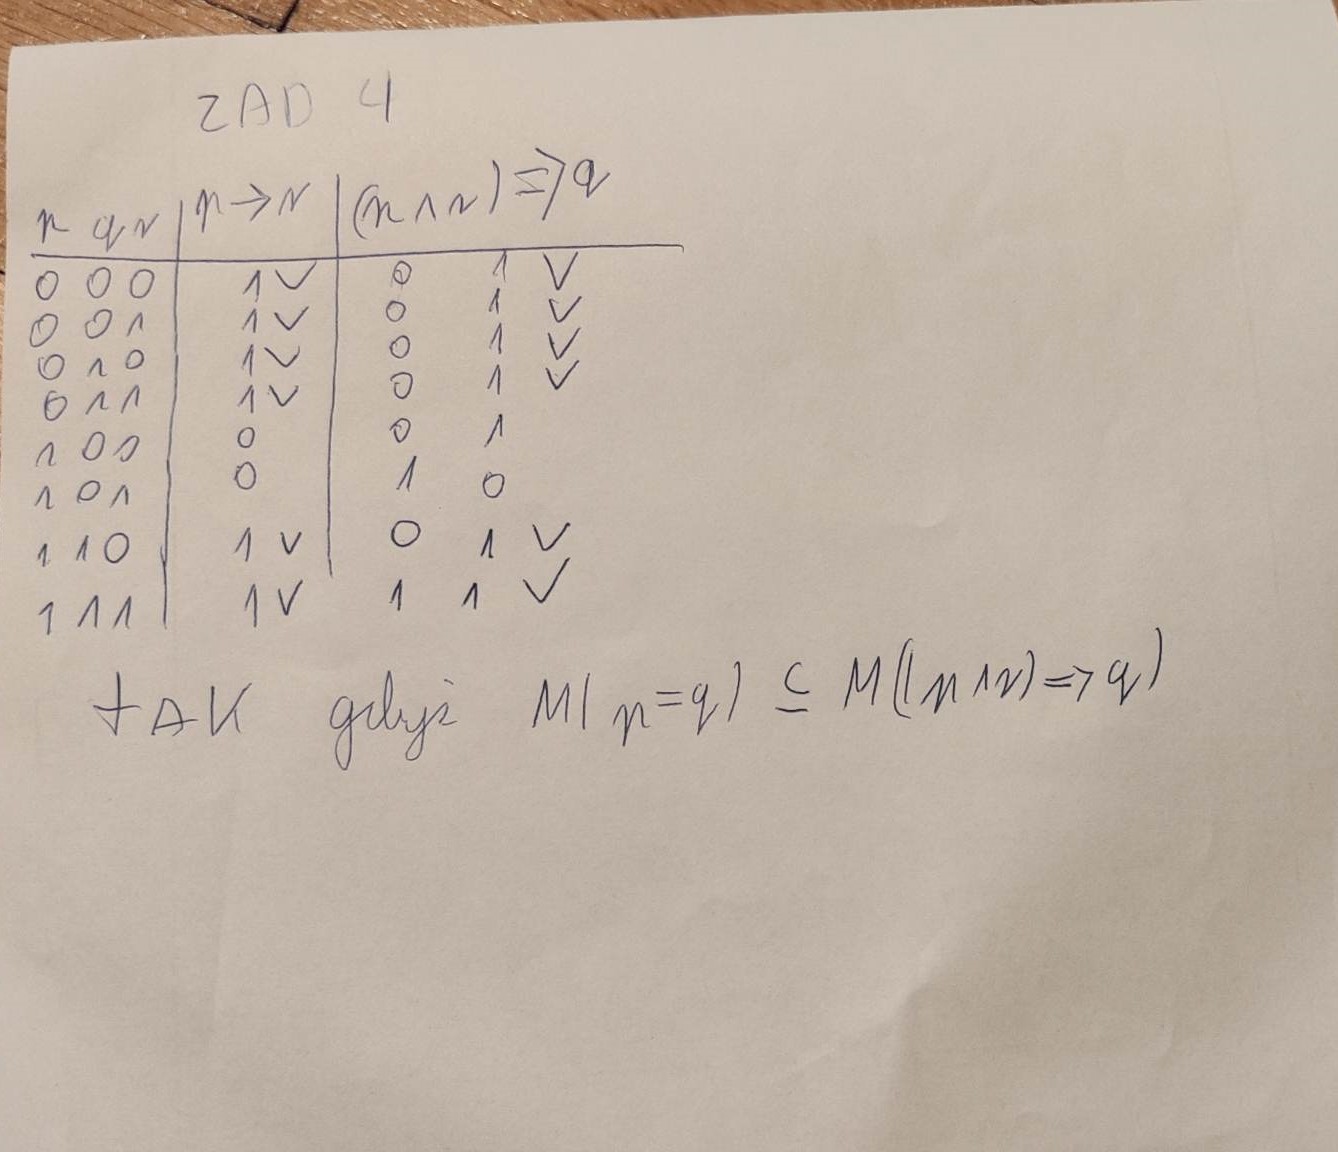 ZAD 4
p q r | p → r | (p ∧ r) ⇒ q
0 0 0 | 1 ✓ | 0 1 ✓
0 0 1 | 1 ✓ | 0 1 ✓
0 1 0 | 1 ✓ | 0 1 ✓
0 1 1 | 1 ✓ | 0 1 ✓
1 0 0 | 0 | 0 1
1 0 1 | 0 | 1 0
1 1 0 | 1 ✓ | 0 1 ✓
1 1 1 | 1 ✓ | 1 1 ✓
tAK gdyż M(p=q) ⊆ M((p∧r)⇒q)